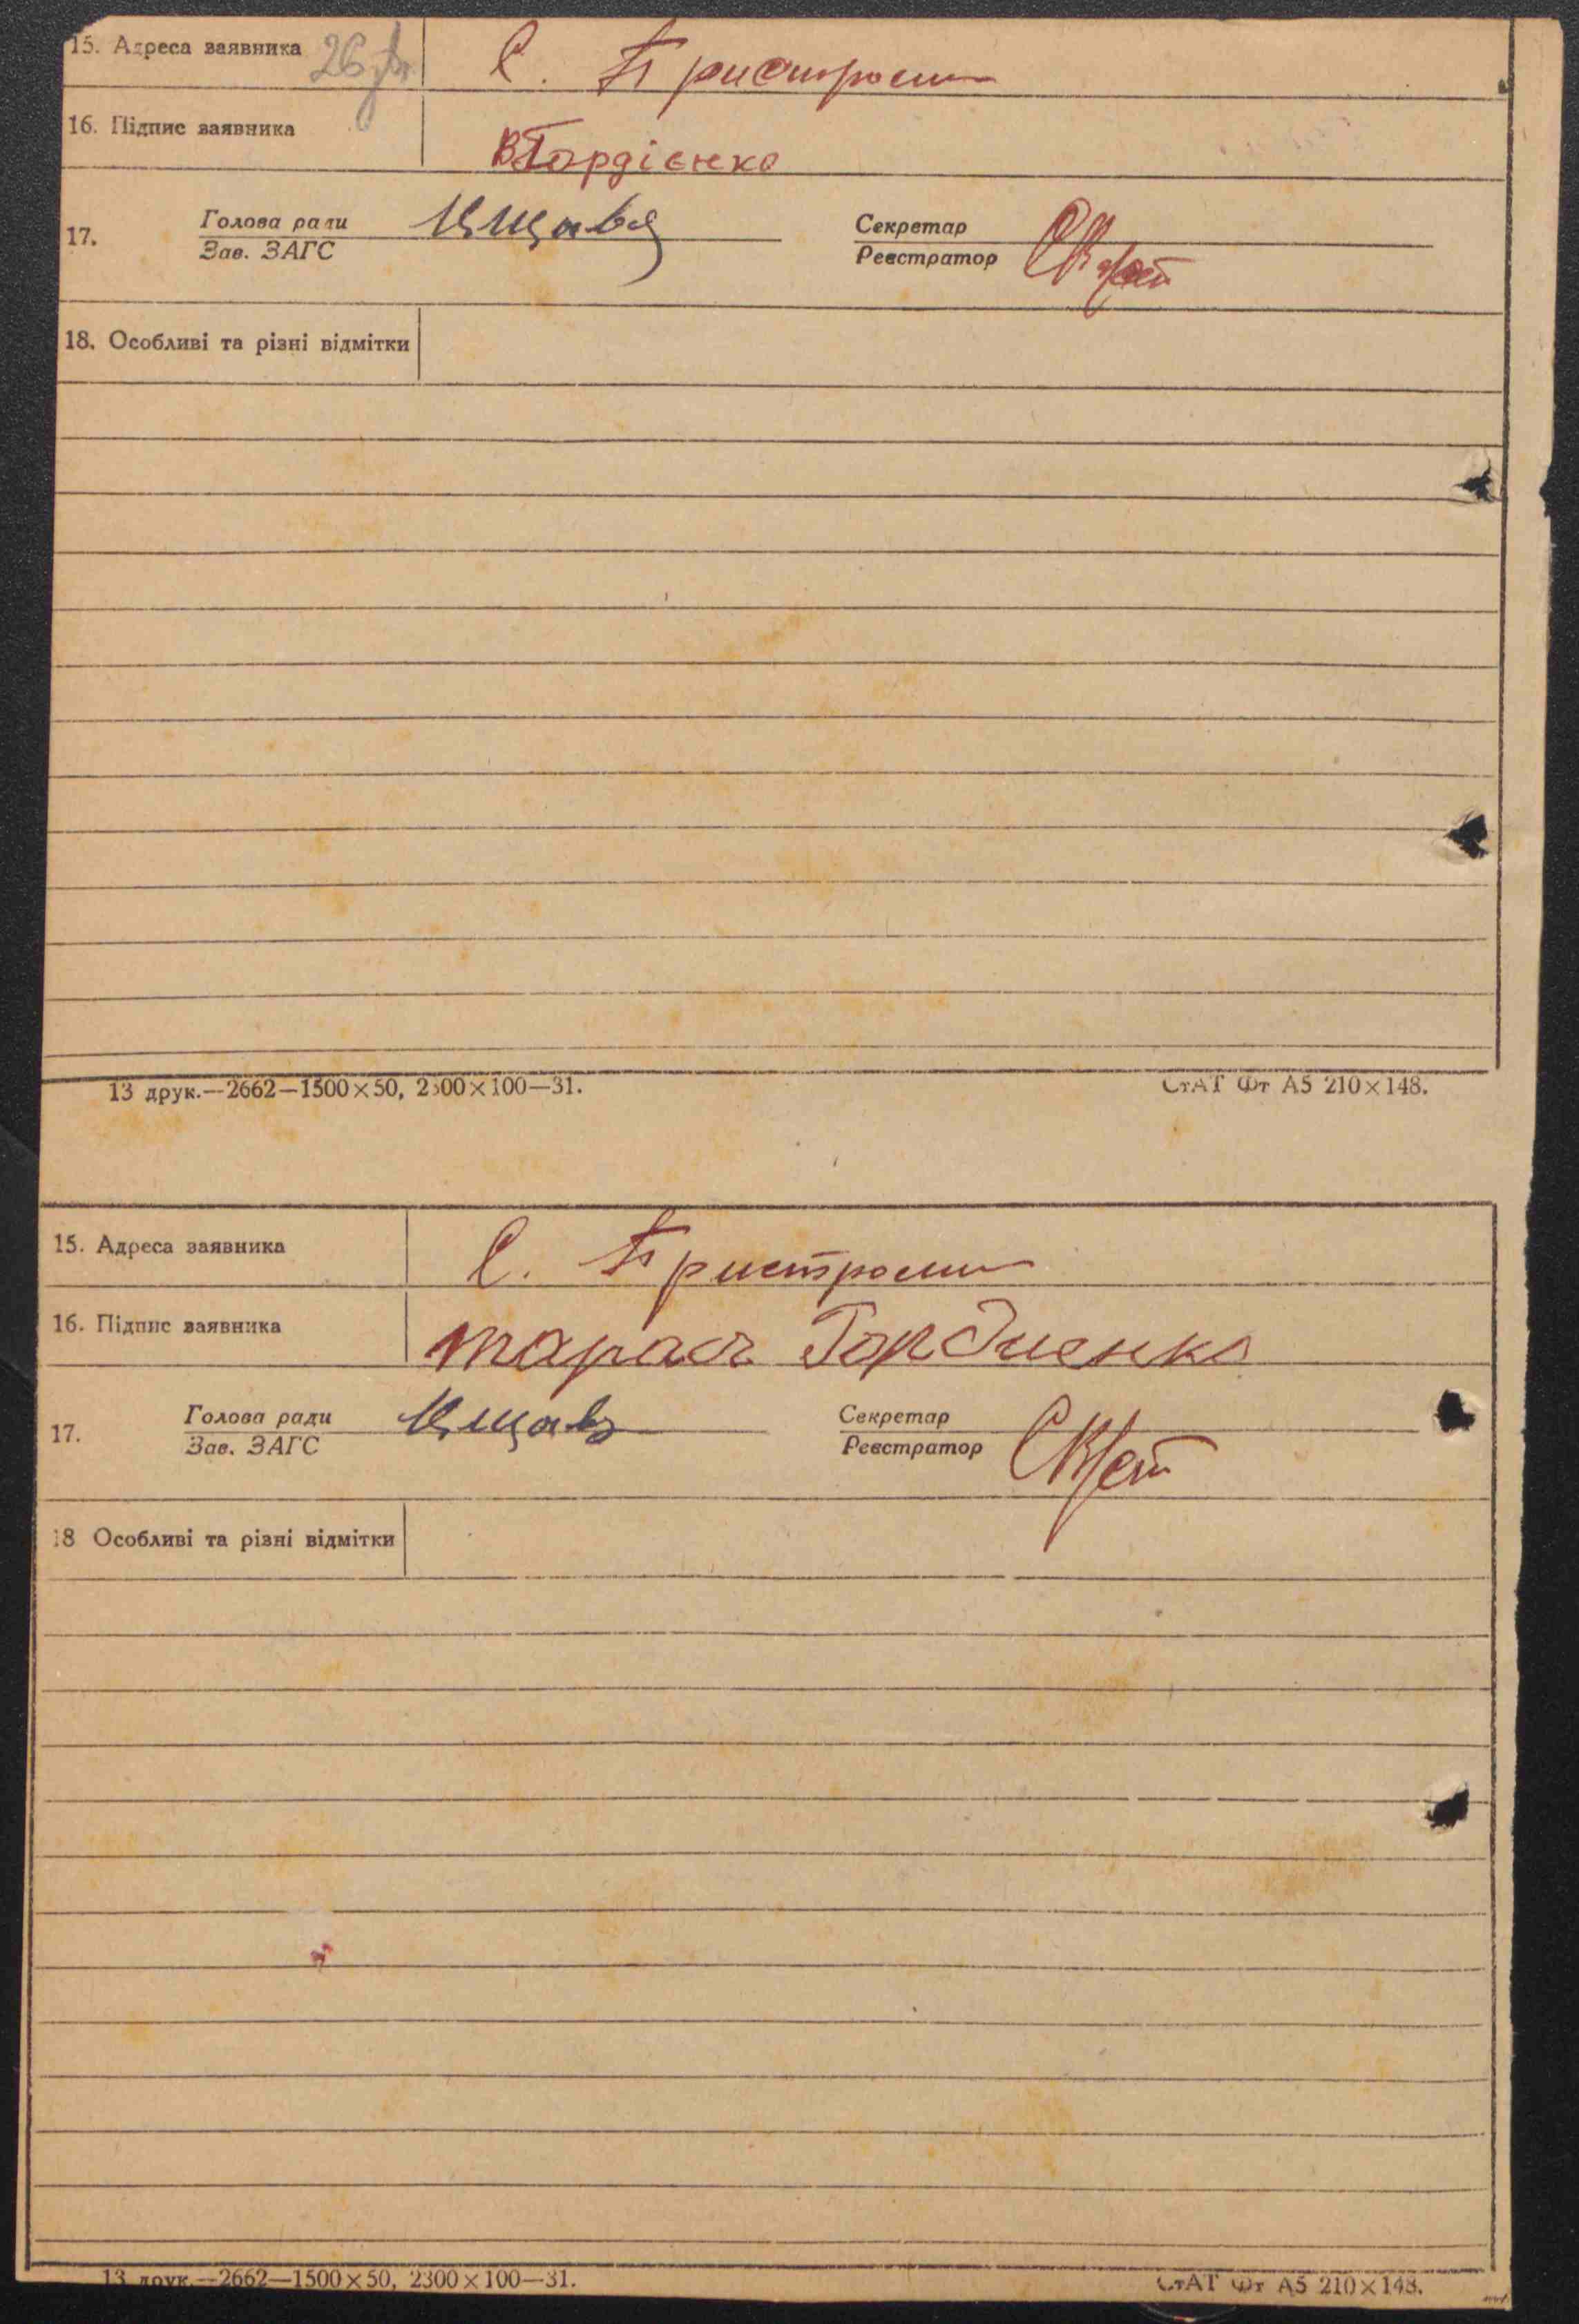 15. Адреса заявника С. Пристроми
16. Підпис заявника ВГордієнко
17. Голова ради Секретар
Зав. ЗАГС Реєстратор
18. Особливі та різні відмітки
13 друк.—2662—1500×50, 2300×100—31. СтАТ Фт А5 210×148.
15. Адреса заявника С. Пристроми
16. Підпис заявника Тарас Гордиенко
17. Голова ради Секретар
Зав. ЗАГС Реєстратор
18 Особливі та різні відмітки
13 друк.—2662—1500×50, 2300×100—31. СтАТ Фт А5 210×148.